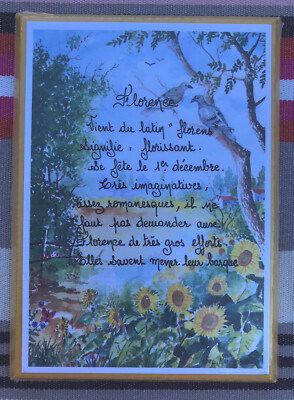 Florence
Vient du latin " florens
Signifie : florissant.
Se fête le 1er décembre.
Très imaginatives,
assez romanesques, il ne
faut pas demander aux
Florence de très gros efforts
Elles savent mener leur barque